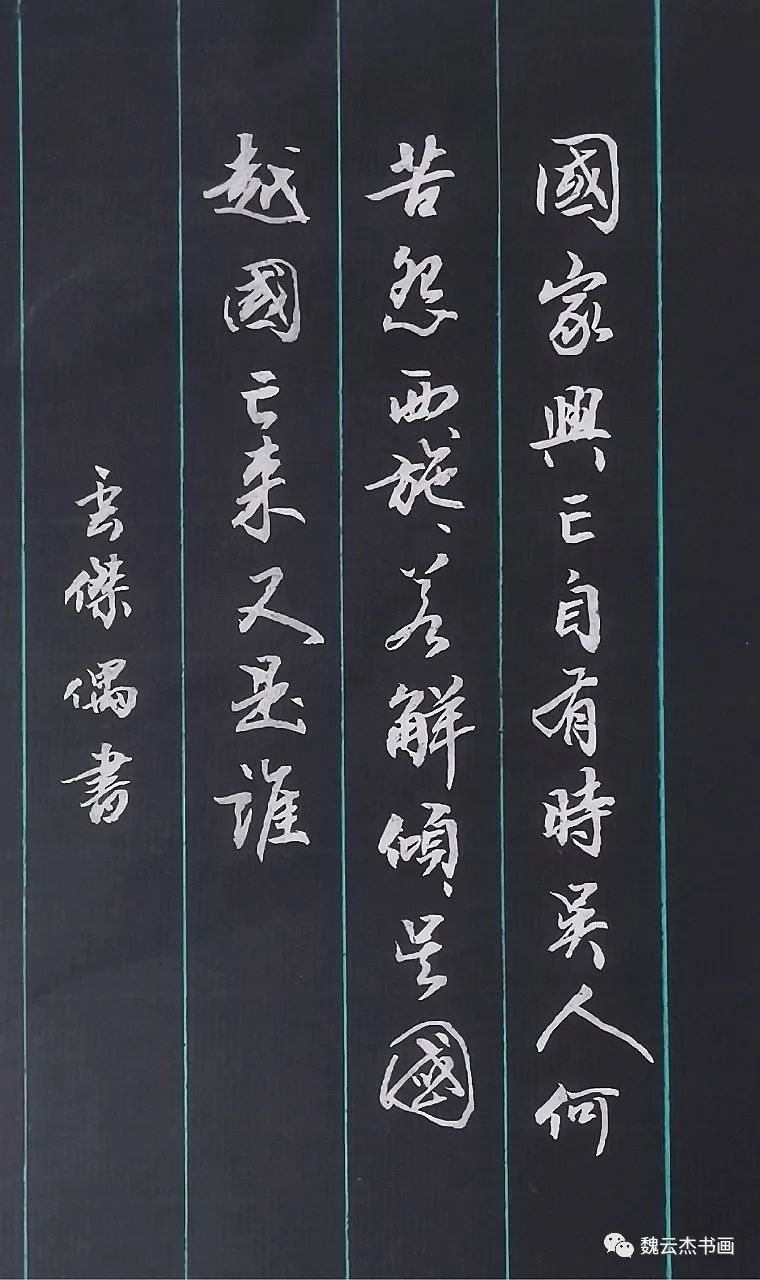 國家興亡自有時吳人何
苦怨西施若解傾吳國
越國亡来又是誰
雲傑偶書
魏云杰书画